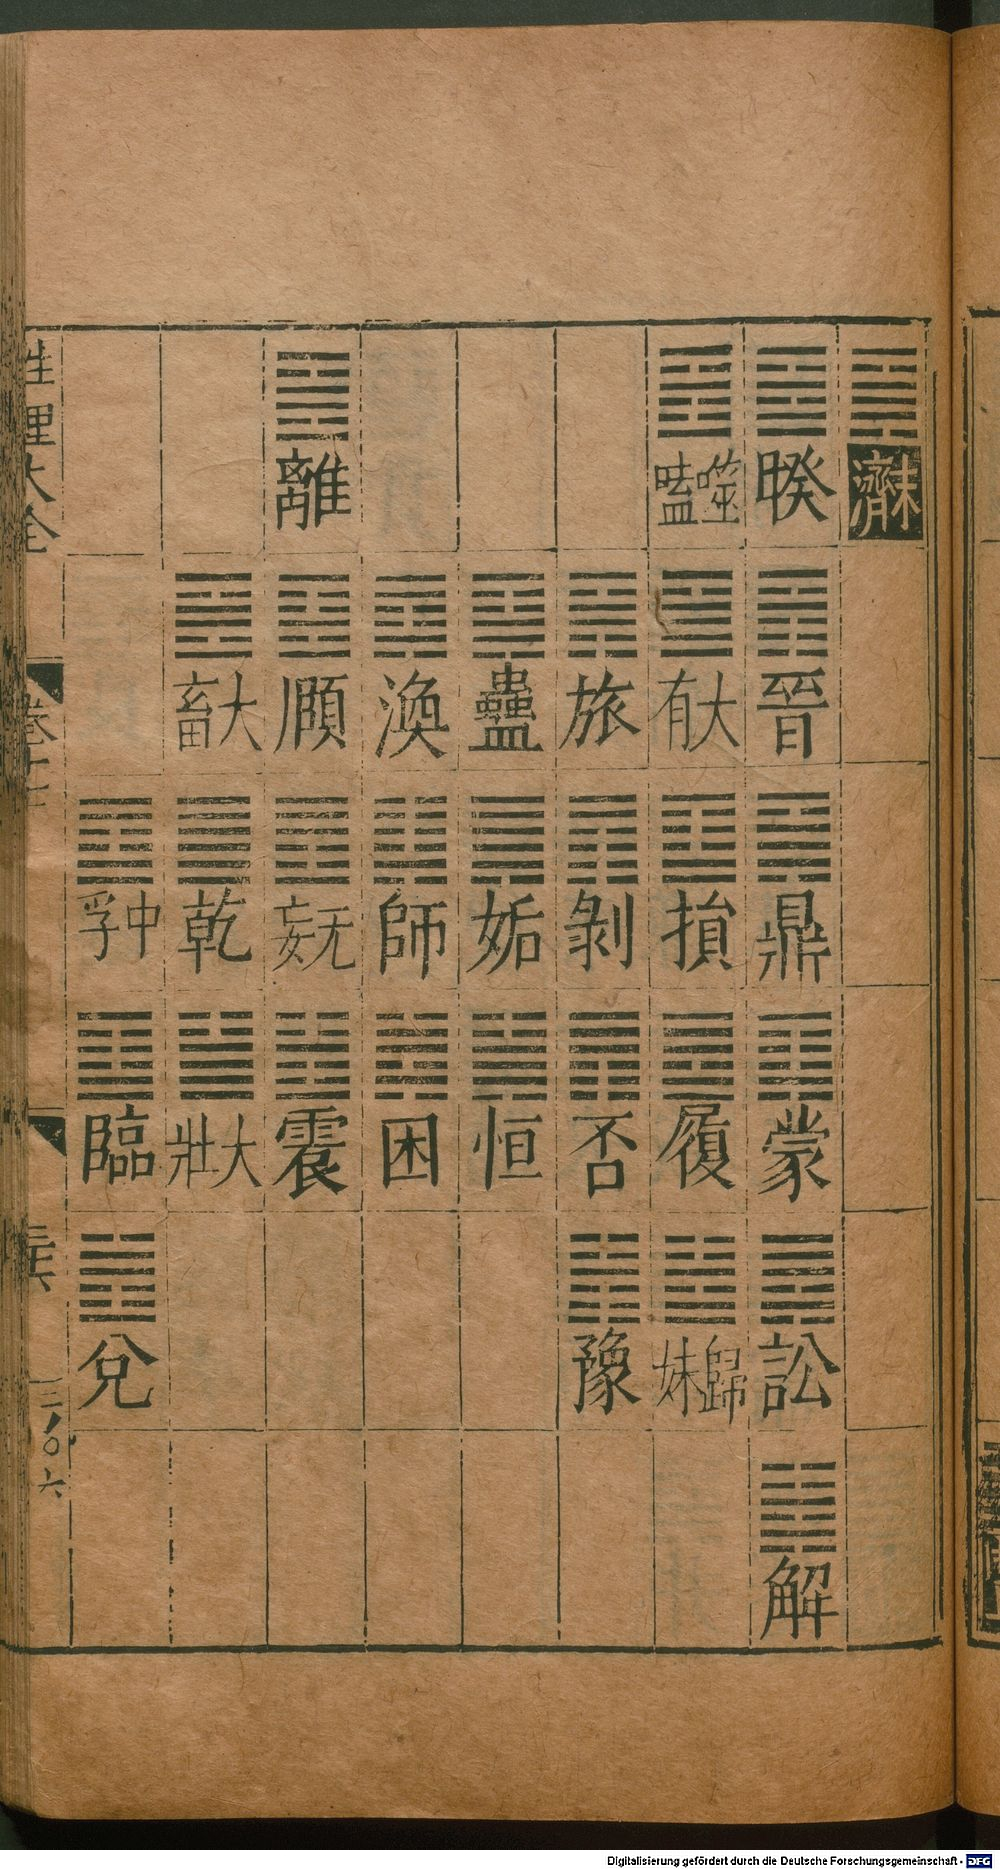 未濟
睽 晉 鼎 蒙 訟 解
噬嗑 大有 損 履 歸妹
旅 剝 否 豫
蠱 姤 恒
渙 師 困
離 頤 无妄 震
大畜 乾 大壯
中孚 臨 兌
性理大全
Digitalisierung gefördert durch die Deutsche Forschungsgemeinschaft - DFG